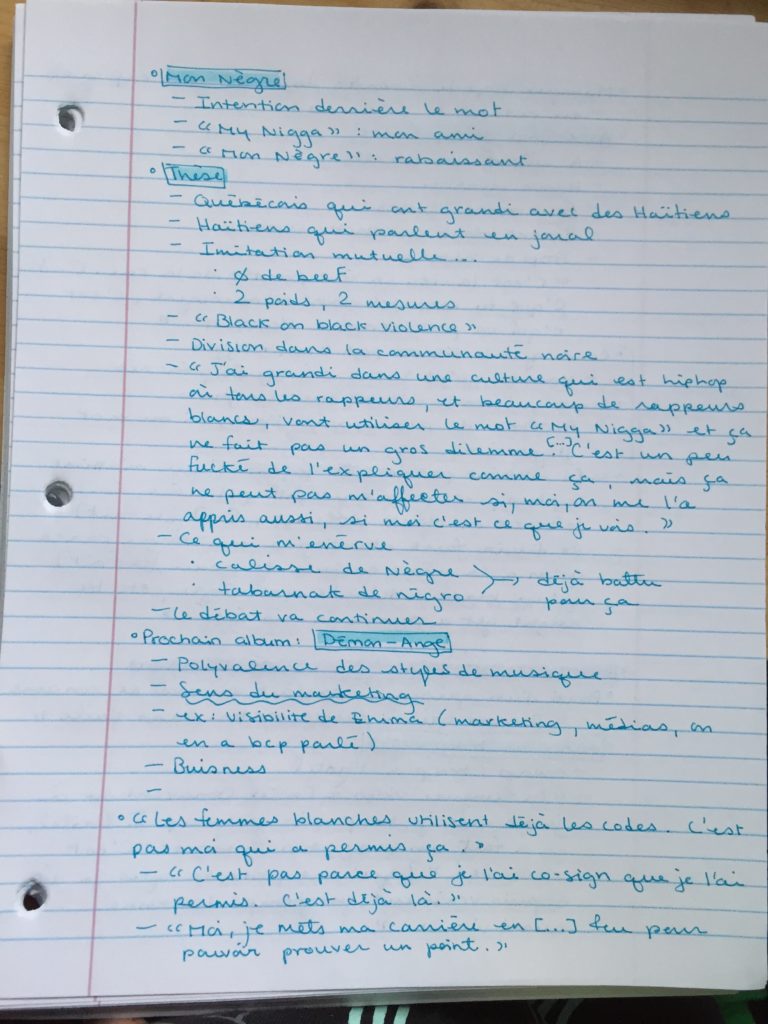 ° Mon Nègre
- Intention derrière le mot
- « My Nigga » : mon ami
- « Mon Nègre » : rabaissant
° Thèse
- Québécois qui ont grandi avec des Haïtiens
- Haïtiens qui parlent en joual
- Imitation mutuelle...
· ∅ de beef
· 2 poids, 2 mesures
- « Black on black violence »
- Division dans la communauté noire
- « J'ai grandi dans une culture qui est hiphop
où tous les rappeurs, et beaucoup de rappeurs
blancs, vont utiliser le mot « My Nigga » et ça
ne fait pas un gros dilemme. [...] C'est un peu
fucké de l'expliquer comme ça, mais ça
ne peut pas m'affecter si, moi, on me l'a
appris aussi, si moi c'est ce que je vois. »
- Ce qui m'énerve
· calisse de Nègre
· tabarnak de nigro → déjà battu
pour ça
- Le débat va continuer
° Prochain album : Démon-Ange
- Polyvalence des styles de musique
- Sens du marketing
- ex : visibilité de Emma (marketing, médias, on
en a bcp parlé)
- Buisness
-
° « Les femmes blanches utilisent déjà les codes. C'est
pas moi qui a permis ça. »
- « C'est pas parce que je l'ai co-sign que je l'ai
permis. C'est déjà là. »
- « Moi, je mets ma carrière en [...] feu pour
pouvoir prouver un point. »